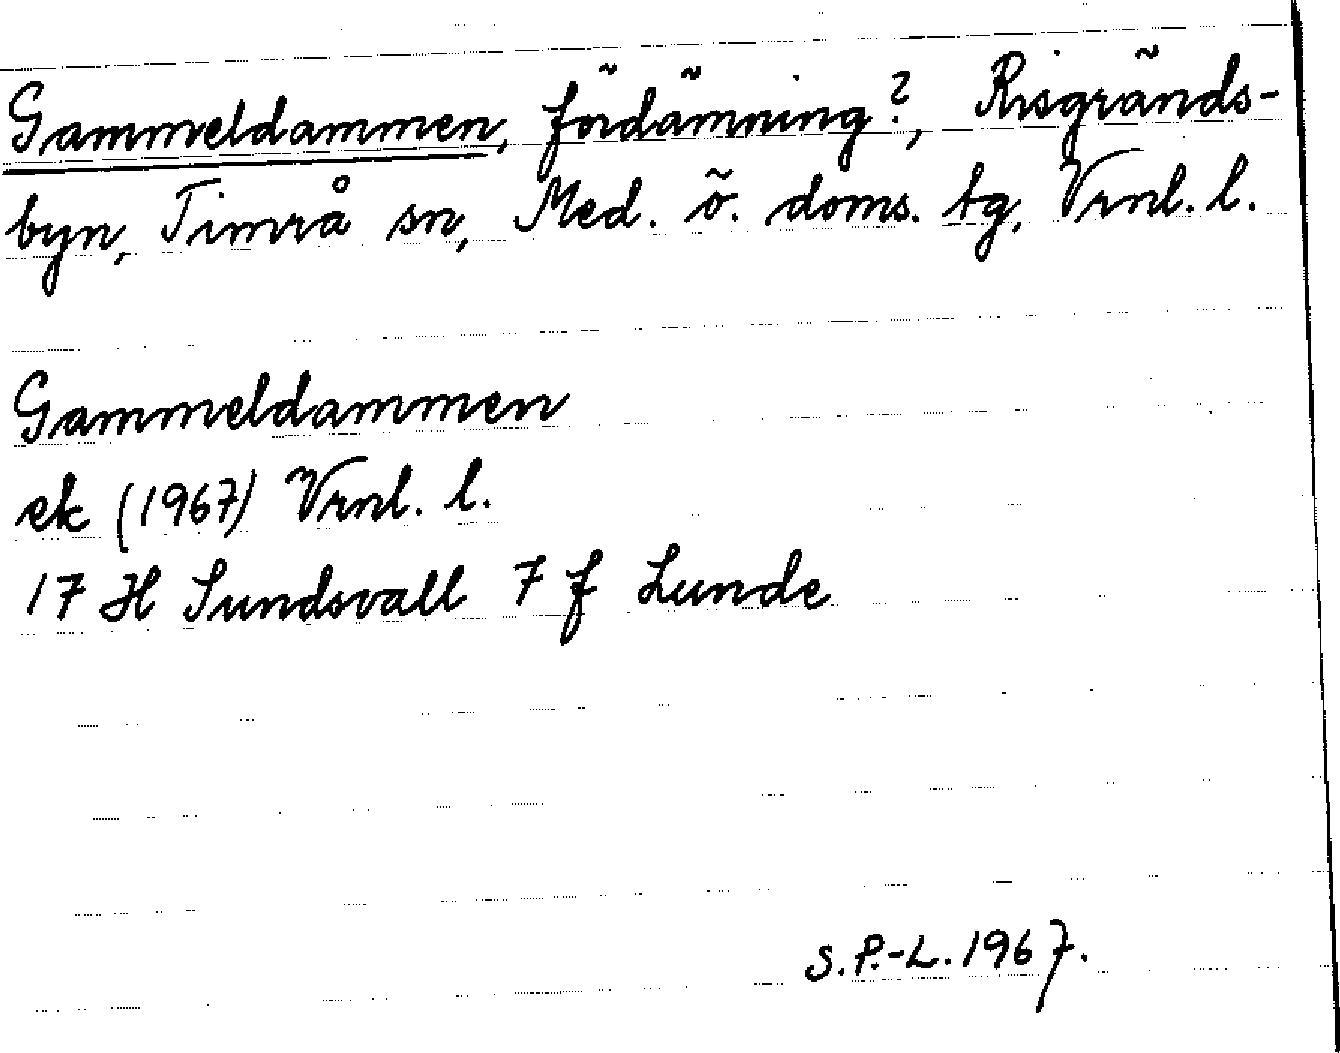 Gammeldammen, fördämning?, Risgränds-
byn, Timrå sn, Med. ö. doms. tg, Vrnl. l.
Gammeldammen
ek (1967) Vrnl. l.
17 H Sundsvall 7 f Lunde
S.P.-L. 1967.